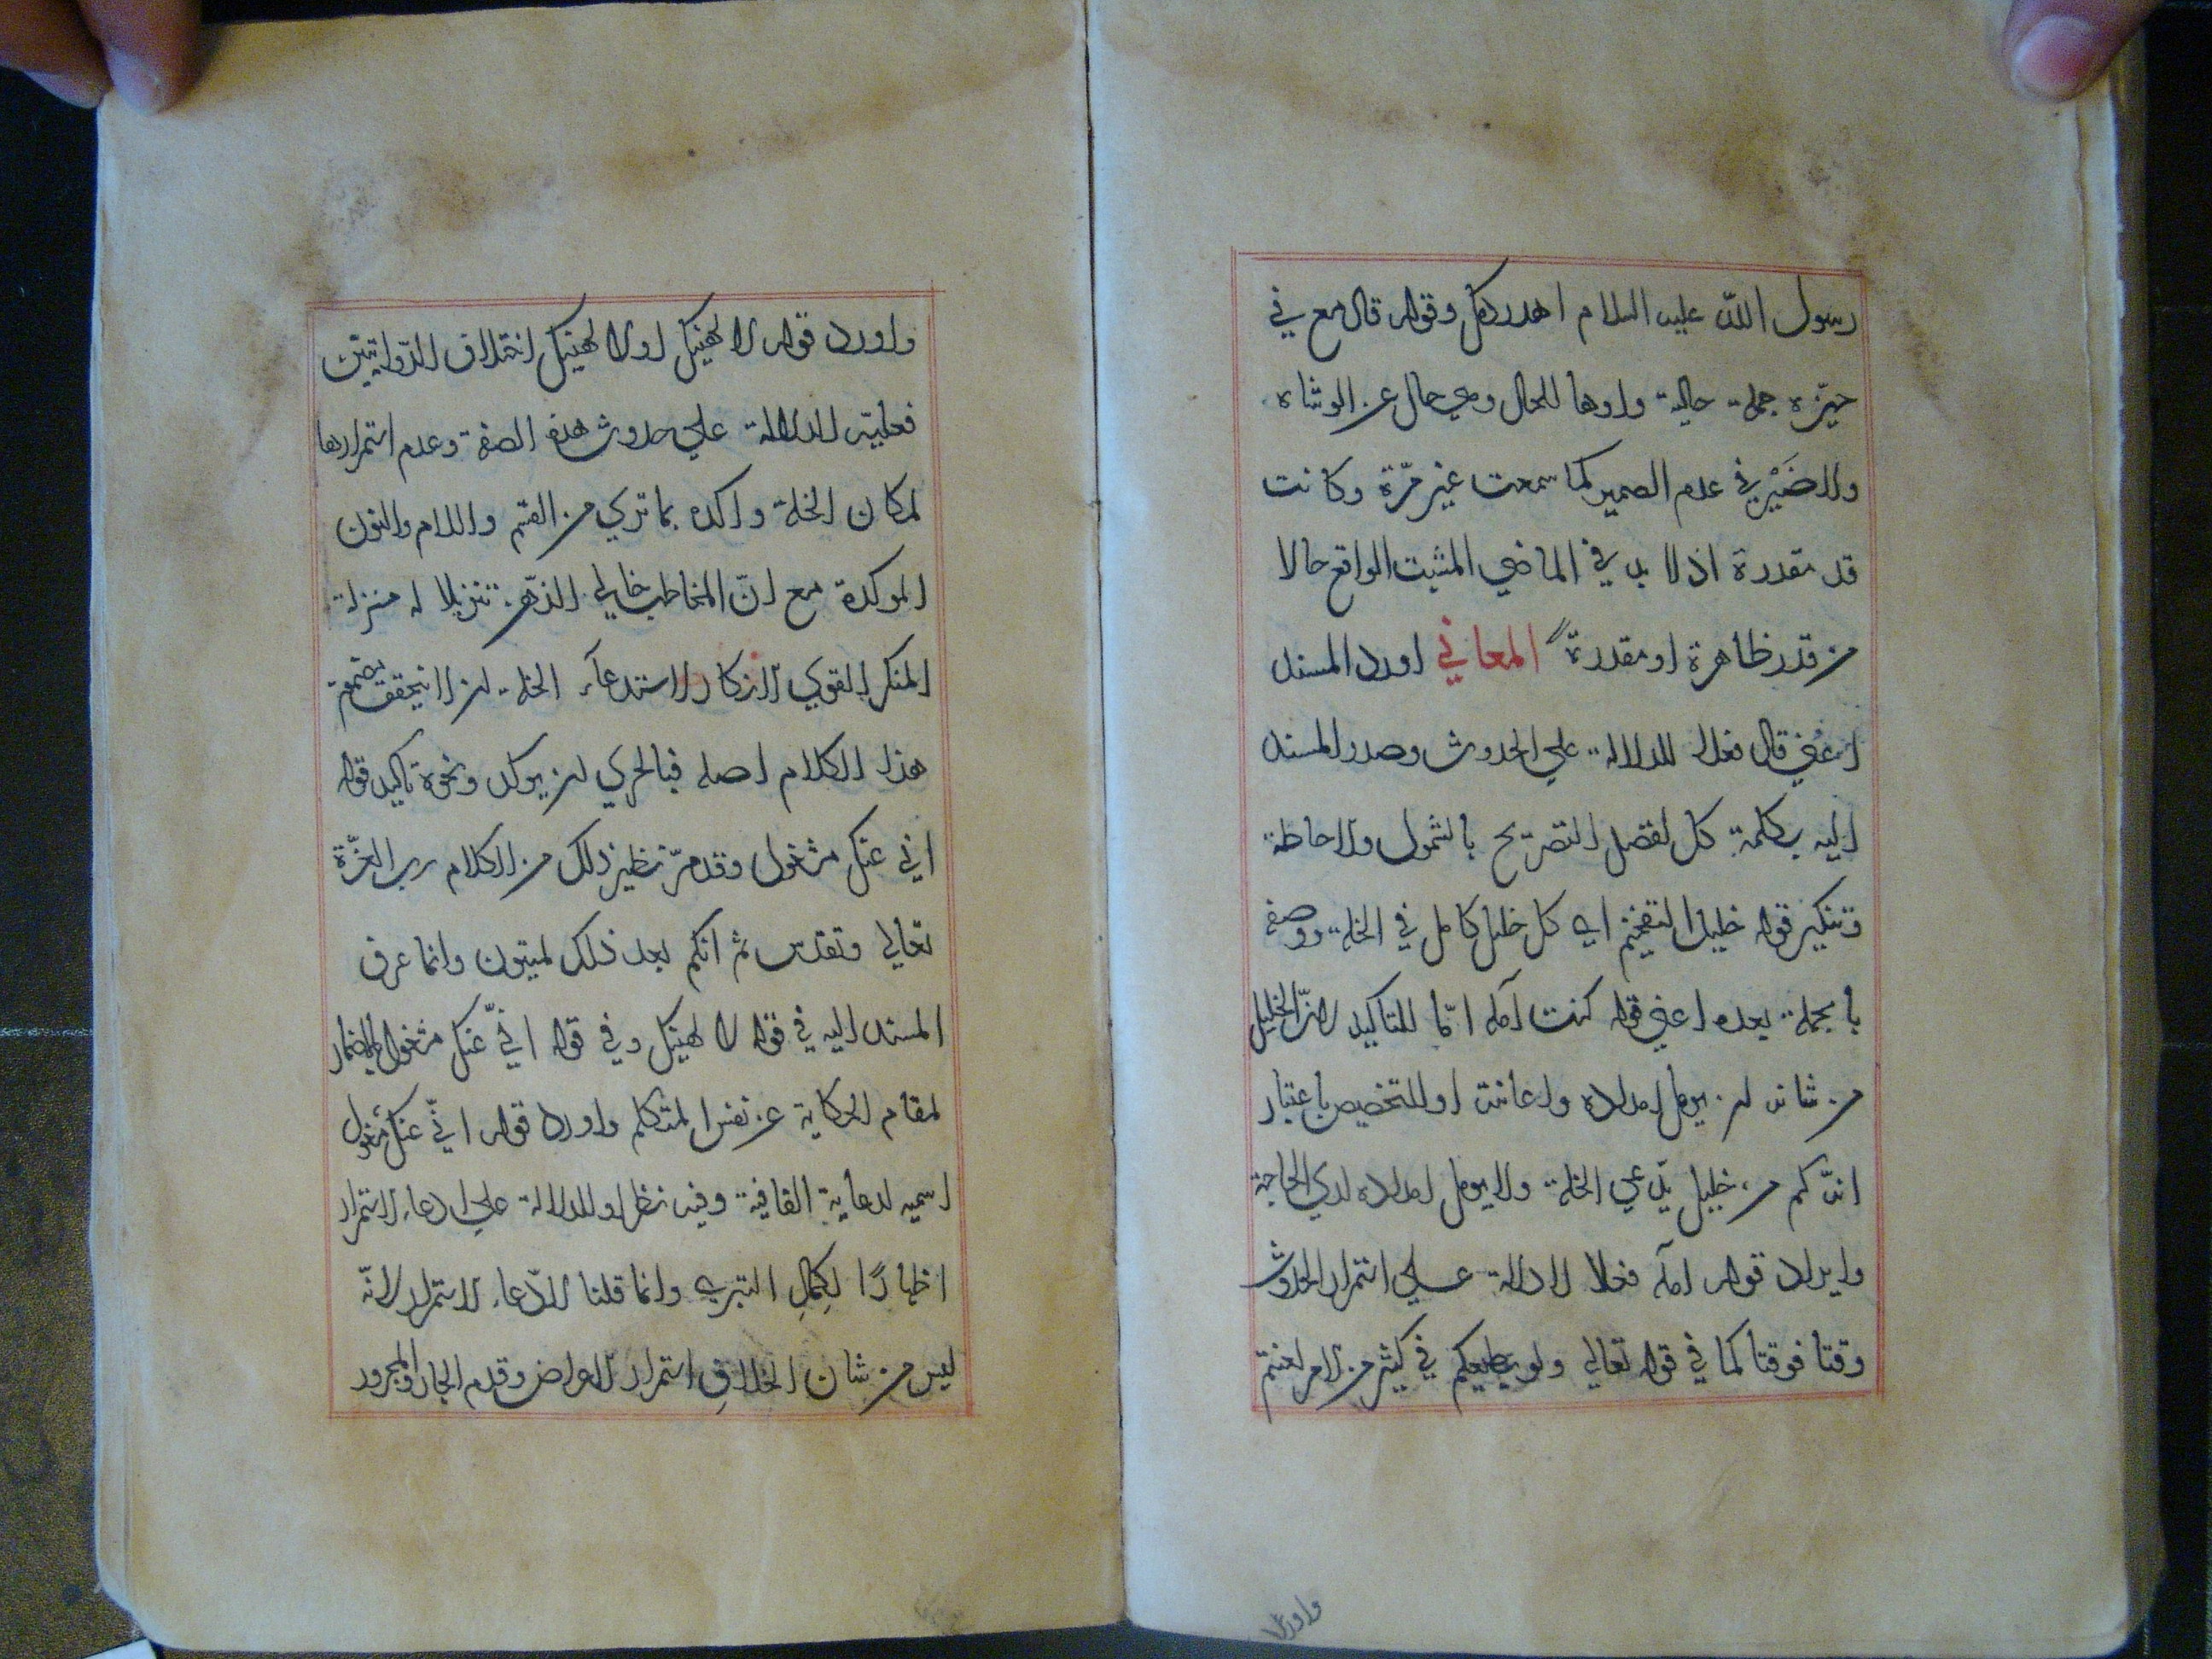 رسول الله عليه السلام اهدر دمك وقوله قال مع في
حيزه جملة حالية واوها للحال وهي حال عن الوشاه
ولا ضَيْر في عدم الضمير كما سمعت غير مرّة وكانت
قد مقدرة اذ لا بد في الماضي المثبت الواقع حالا
من قد ظاهرة او مقدرة المعاني اورد المسند
اعني قال فعلا للدلالة علي الحدوث وصدر المسند
اليه بكلمة كل لقصد التصريح بالشمول والاحاطة
وتنكير قوله خليل التفخيم اي كل خليل كامل في الخلة ووصفه
بالجملة بعده اعني قوله كنت آمله امّا للتاكيد لانّ الخليل
من شانه ان يومل امداده واعانته او للتخصيص باعتبار
انّه كم من خليل يدّعي الخلة ولا يومل امداده لدي الحاجة
وايراد قوله آمله فعلا لادلالة علي استمرار الحدوث
وقتا فوقتا كما في قوله تعالي ولو يطيعكم في كثير من الامر لعنتم
واورد
واورد قوله لا الهينك اولا لهينك اختلاف الرّوايتين
فعلية للدلالة علي حدوث هذه الصفة وعدم استمرارها
لمكان الخلة واكده بما تري من القسم واللام والنون
الموكدة مع انّ المخاطب خالي الذّهن تنزيلا له منزلة
المنكر القوي الانكار لاستدعآء الخلة ان لا يتحقق معتمعة
هذا الكلام اصله فبالحري ان يوكد ونحوه تاكيد قوله
اني عنك مشغول وقد مرّ نظير ذلك من الكلام رب العزّة
تعالي وتقدس ثم انكم بعد ذلك لميتون وانما عرف
المسند اليه في قوله لا لهينك وفي قوله انيّ عنك مشغول بالاضمار
لمقام الحكاية عن نفس المتكلم واورد قوله انّي عنك مشغول
اسمية لدعاية القافية وفيه نظر او للدلالة علي ادعاء الاستمرار
اظهارًا لكمال التبري وانما قلنا الادّعاء الاستمرار لانّه
ليس من شان الخلاف استمرار الاعراض وقدم الجار والمجرور